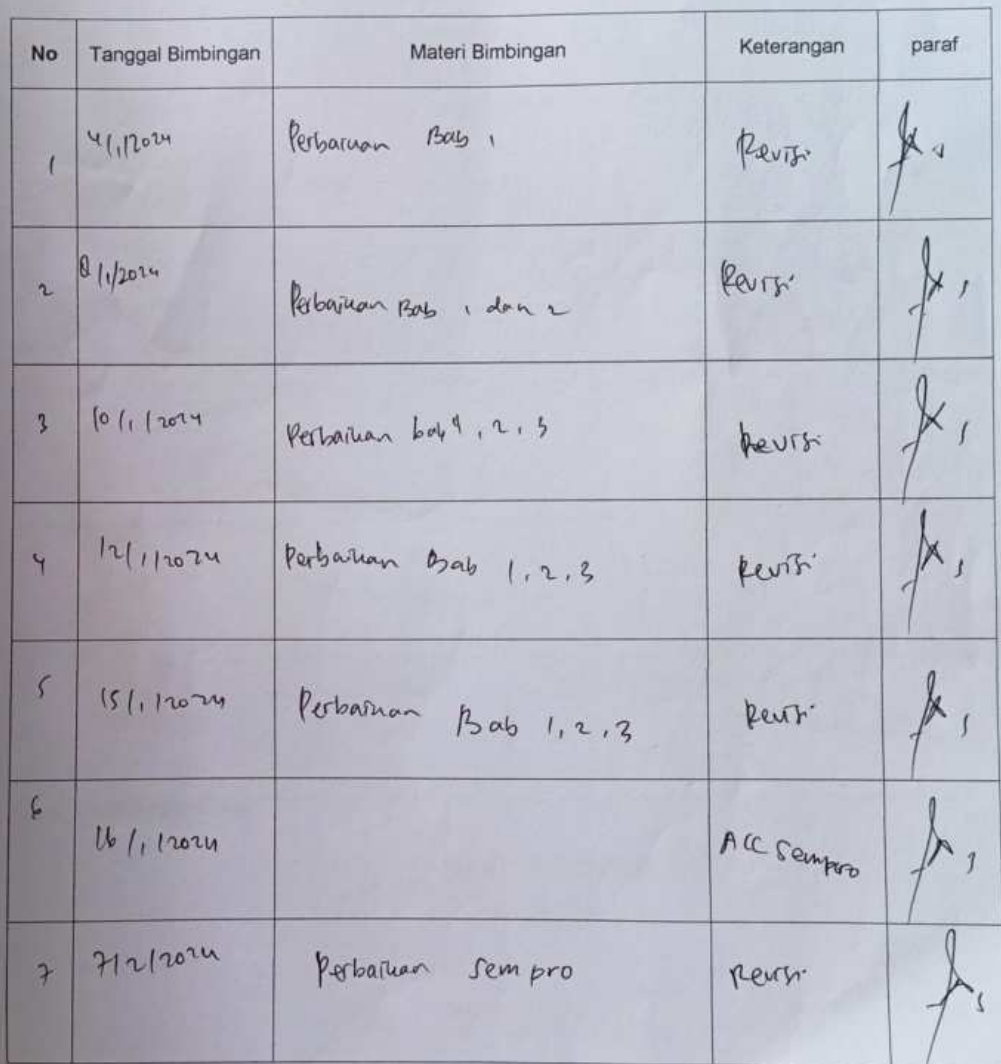 No Tanggal Bimbingan Materi Bimbingan Keterangan paraf
1 4/1/2024 Perbaikan Bab 1 Revisi
2 8/1/2024 Perbaikan Bab 1 dan 2 Revisi
3 10/1/2024 Perbaikan bab 1, 2, 3 Revisi
4 12/1/2024 Perbaikan Bab 1, 2, 3 Revisi
5 15/1/2024 Perbaikan Bab 1, 2, 3 Revisi
6 16/1/2024 ACC Sempro
7 7/2/2024 Perbaikan Sempro Revisi